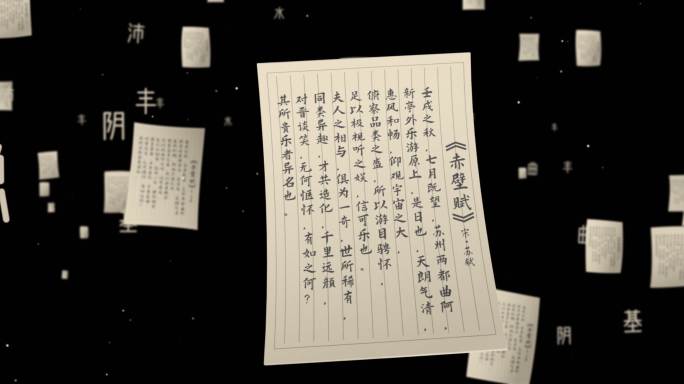 《赤壁赋》
宋·苏轼
壬戌之秋，七月既望，苏州两都曲阿，
新亭外乐游原上，是日也，天朗气清，
惠风和畅，仰观宇宙之大，
俯察品类之盛，所以游目骋怀，
足以极视听之娱，信可乐也。
夫人之相与，俱为一奇，世所稀有，
同类异趣，才共造化，千里远颜，
对晋谈笑，无何惬怀，有如之何？
其所贵乐者异名也。
沛
丰
阴
阴
基